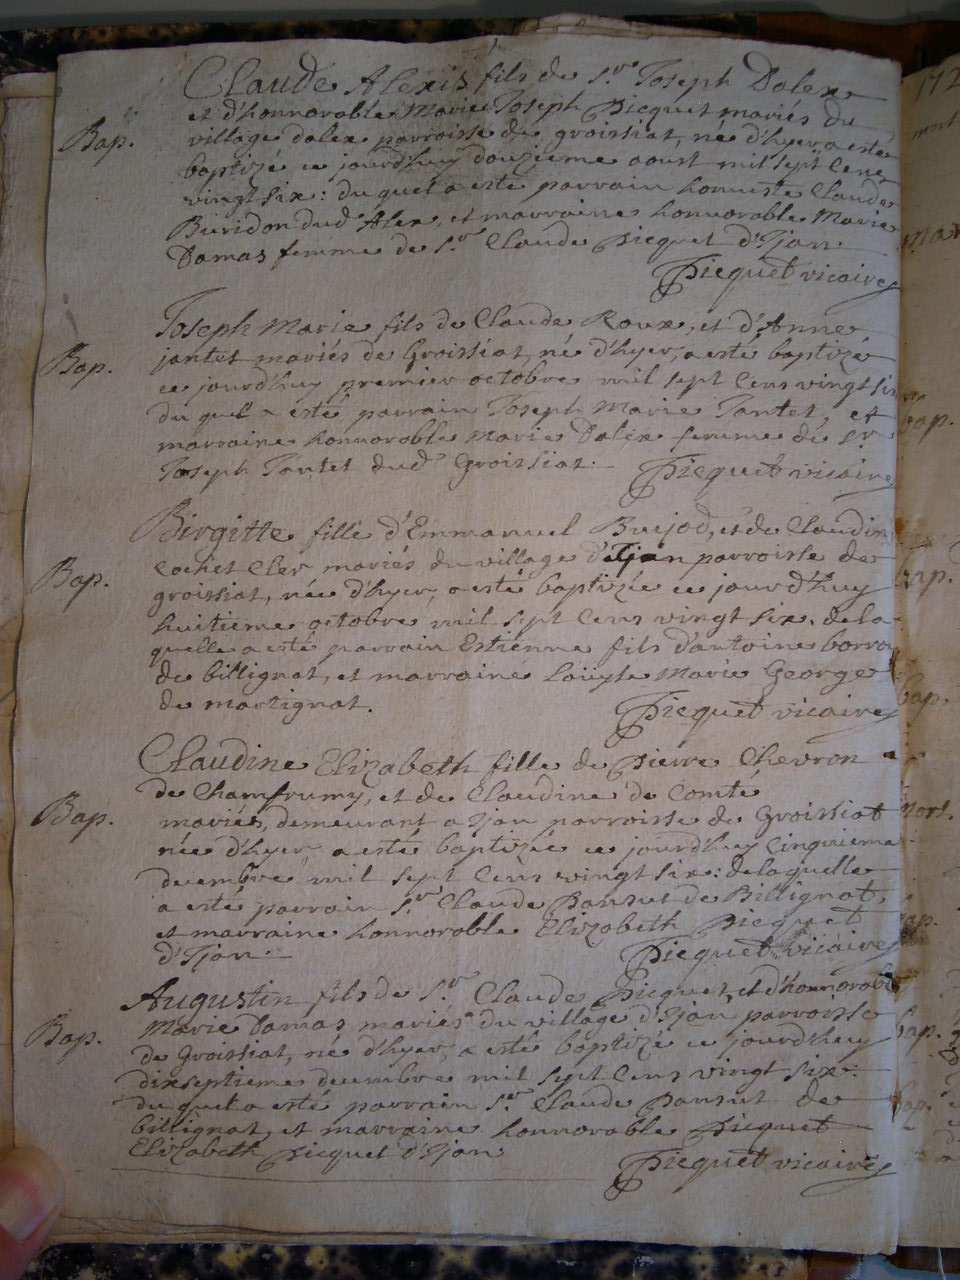 Claude Alexis fils de Sr Joseph Dalex
et d'honnorable Marie Joseph Picquet mariés du
Bap. village dalex parroisse de groissiat, né d'hyer, a esté
baptizé ce jourd'huy douzieme aoust mil sept cens
vingt six: du quel a esté parrain honneste Claude
Buridon dud Alex, et marraine honnorable Marie
Damas femme de Sr Claude Picquet d'Ijan.
Picquet vicaire
Joseph Marie fils de Claude Roux, et d'Anne
Bap. jantet mariés de Groissiat, né d'hyer, a esté baptizé
ce jourd'huy premier octobre mil sept cens vingt six
du quel a esté parrain Joseph Marie Tantet, et
marraine honnorable Marie Dalex femme de Sr
Joseph Tantet dud Groissiat.
Picquet vicaire
Birgitte fille d'Emmanuel Bujod, et de Claudine
Bap. cochet Cler mariés du village d'Ijan parroisse de
groissiat, née d'hyer, a esté baptizée ce jourd'huy
huitieme octobre mil sept cens vingt six, de la
quelle a esté parrain Estienne fils d'antoine borro
de billignat, et marraine Louyse Marie George
de martignat.
Picquet vicaire
Claudine Elizabeth fille de Pierre Chevron
de Chamfrumy, et de Claudine de Comté
Bap. mariés, demeurant a Ijan parroisse de Groissiat
née d'hyer, a esté baptizée ce jourd'huy cinquieme
decembre mil sept cens vingt six: de laquelle
a esté parrain Sr Claude Pansut de Billignat,
et marraine honnorable Elizabeth Picquet
d'Ijan.
Picquet vicaire
Augustin fils de Sr Claude Picquet, et d'honnorable
Bap. Marie Damas mariés du village d'Ijan parroisse
de Groissiat, né d'hyer, a esté baptizé ce jourd'huy
dixseptieme decembre mil sept cens vingt six.
du quel a esté parrain Sr Claude Pansut de
billignat, et marraine honnorable Picquet
Elizabeth Picquet d'Ijan
Picquet vicaire